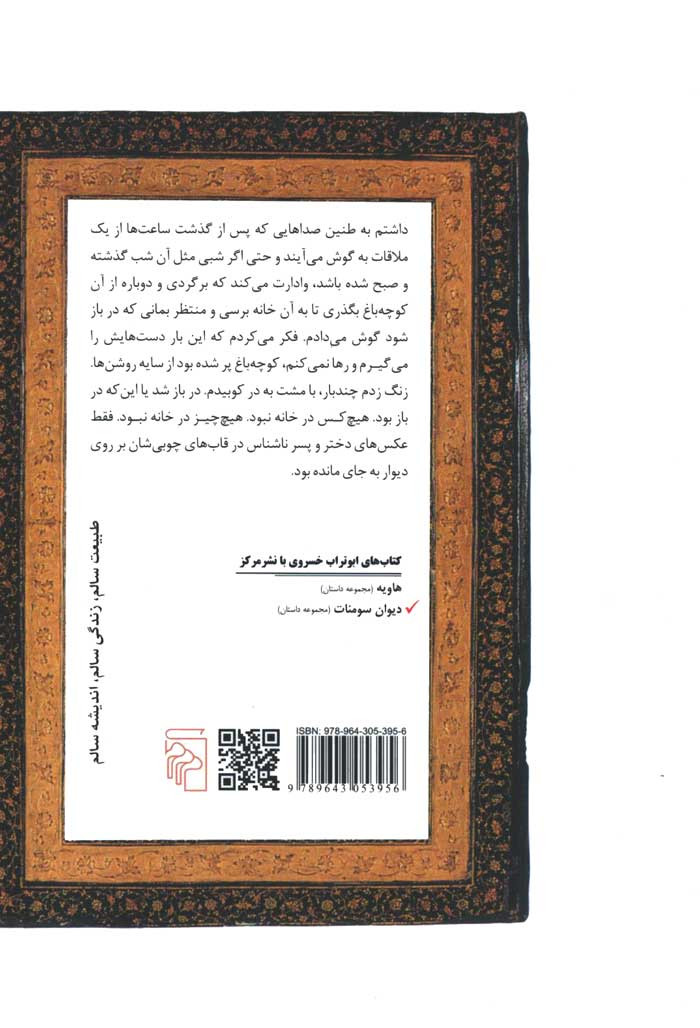 داشتم به طنین صداهایی که پس از گذشت ساعت‌ها از یک
ملاقات به گوش می‌آیند و حتی اگر شبی مثل آن شب گذشته
و صبح شده باشد، وادارت می‌کند که برگردی و دوباره از آن
کوچه‌باغ بگذری تا به آن خانه برسی و منتظر بمانی که در باز
شود گوش می‌دادم. فکر می‌کردم که این بار دست‌هایش را
می‌گیرم و رها نمی‌کنم، کوچه‌باغ پر شده بود از سایه روشن‌ها.
زنگ زدم چندبار، با مشت به در کوبیدم. در باز شد یا این‌که در
باز بود. هیچ‌کس در خانه نبود. هیچ‌چیز در خانه نبود. فقط
عکس‌های دختر و پسر ناشناس در قاب‌های چوبی‌شان بر روی
دیوار به جای مانده بود.
کتاب‌های ابوتراب خسروی با نشرمرکز
هاویه (مجموعه داستان)
دیوان سومنات (مجموعه داستان)
طبیعت سالم، زندگی سالم، اندیشه سالم
ISBN: 978-964-305-395-6
9 789643 053956